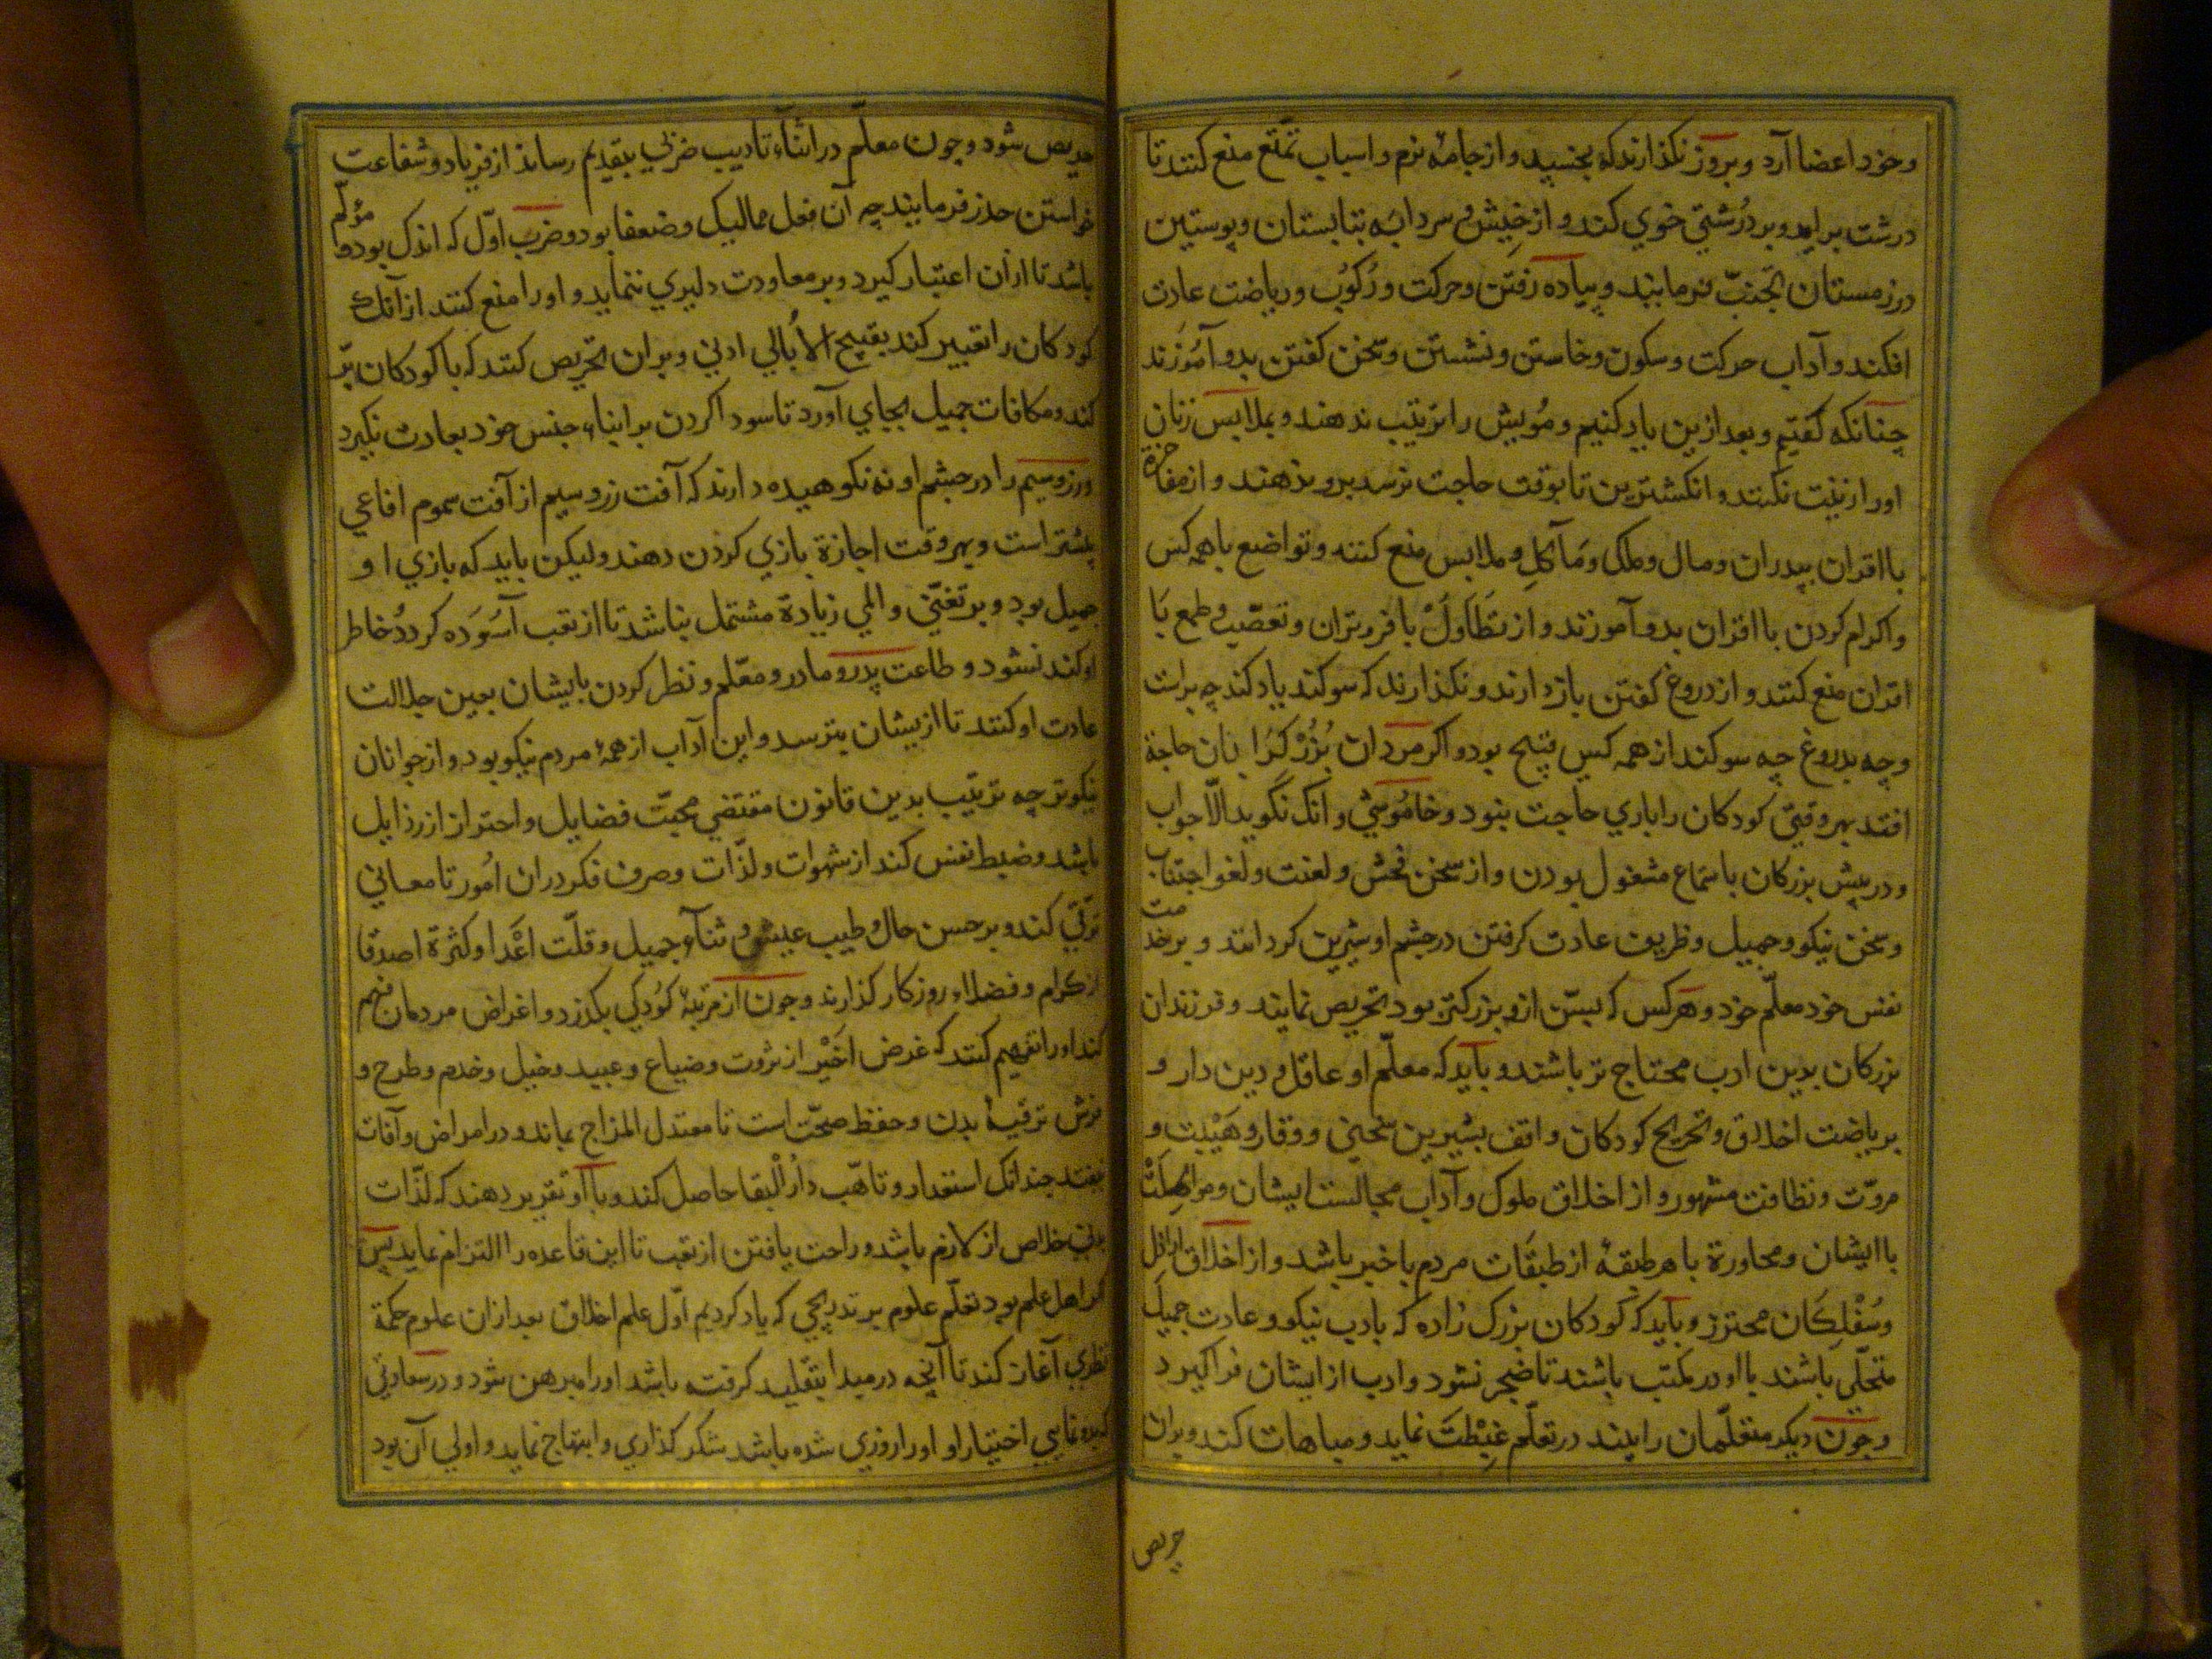 وخود اعضا آرد و بروز نکذارند که بخسپد و از جامهٔ نرم و اسباب تمتّع منع کنند تا
درشت برآید و بر دُرُشتی خوی کند و از خیش و سردابه بتابستان و پوستین
در زمستان تجنّب فرمایند و پیاده رفتن و حرکت و رُکُوب و ریاضت عادت
افکند و آداب حرکت و سکون و خاستن و نشستن و سخن کفتن بدو آمُوزند
چنانکه کفتیم و بعد ازین یاد کنیم و مُویش را ترتیب ندهند و بملابس زنان
او را زینت نکنند و انکشترین تا بوقت حاجت نرسد بدو ندهند و از مفاخرة
با اقران بپدران و مال و ملک و مَآکل و ملابس منع کنند و تواضع با همه کس
و اکرام کردن با اقران بدو آموزند و از تَطَاوُل با فروتران و تعصّب و طمع بَا
اقران منع کنند و از دروغ کفتن باز دارند و نکذارند که سوکند یاد کند چه براست
و چه بدروغ چه سوکند از همه کس قبیح بود و اکر مردان بُزُرْک را بدان حاجة
افتد بهر وقتی کودکان را باری حاجت نبود و خامُوشی و انک نگوید الّا جواب
و در پیش بزرکان باستماع مشغول بودن و از سخن فحش و لعنت و لغو اجتناب
و سخن نیکو و جمیل و ظریف عادت کرفتن در چشم او شیرین کردانند و بر خدمت
نفس خود معلّم خود و هر کس که بسّن ازو بزرکتر بود تحریص نمایند و فرزندان
بزرکان بدین ادب محتاج تر باشند و باید که معلّم او عاقل و دین دار و
بریاضت اخلاق و تخریج کودکان واقف بشیرین سخنی و وقار و هَیْبت و
مروّت و نظافت مشهور و از اخلاق ملوک و آداب مجالست ایشان و مواکلت
با ایشان و محاورة با هر طبقهٔ از طبقات مردم باخبر باشد و از اخلاق اراذل
و سُفْلِکَان محترز و باید که کودکان بزرک زاده که بادب نیکو و عادت جمیل
متحلّی باشند با او در مکتب باشند تا ضجر نشود و ادب از ایشان فرا کیرد
و چون دیکر متعلّمان را بیند در تعلّم غِبْطَت نماید و مباهات کند و بران
حریص
حریص شود و چون معلّم در اثنآء تادیب ضربی بتقدیم رساند از فریاد و شفاعت
خواستن حذر فرمایند چه آن فعل ممالیک و ضعفا بود و ضرب اوّل که اندک بود و مؤلم
باشد تا از ان اعتبار کیرد و بر معاودت دلیری ننماید و او را منع کنند از آنک
کودکان را تعییر کند بقبیح الّا بالی ادبی و بر ان تحریص کنند که با کودکان برّ
کند و مکافات جمیل بجای آورد تا سود کردن بر ابناء جنس خود بعادت نکیرد
و زر و سیم را در چشم او نکوهیده دارند که آفت زر و سیم از آفت سموم افاعی
بیشتر است و بهر وقت اجازة بازی کردن دهند ولیکن باید که بازی او
جمیل بود و بر تعبی و المی زیادة مشتمل نباشد تا از تعب آسُوَده کردد و خاطر
او کند نشود و طاعت پدر و مادر و معّلم و نظر کردن بایشان بعین جلالت
عادت او کنند تا از یشان بترسد و این آداب از همهٔ مردم نیکو بود و از جوانان
نیکوتر چه تربیّت بدین قانون مقتضی محبّت فضایل و احتراز از رذایل
باشد و ضبط نفس کند از شهوات و لذّات و صرف فکر در ان امُور تا معالی
ترقّی کند و بر حسن حال و طیب عیش و ثنآء جمیل و قلّت اعْدا و کثرة اصدقا
از کرام و فضلاء روزکار کذارند و چون از مرتبهٔ کُودکی بکذرد و اغراض مردمان فهم
کند او را تفهیم کنند که غرض اخیْر از ثروت و ضیاع و عبید و خیل و خدم و طرح و
فرش ترفیهٔ بدن و حفظ صحّت است تا معتدل المزاج بماند و در امراض و آفات
نیفتد چندانک استعداد و تاهّب دارُ الْبقا حاصل کند و با او تقریر دهند که لذّات
بدنی خلاص از الام باشد و راحت یافتن از تعب تا این قاعده را التزام نماید پس
اکر اهل علم بود تعلّم علوم بر تدریجی که یاد کردیم اوّل علم اخلاق بعد از ان علوم حکمة
نظری آغاز کند تا آنچه در مبدا بتقلید کرفته باشد او را مبرهن شود و در سعادتی
که بدو نمایی اختیار او او را روزی شده باشد شکر کذاری و ابتهاج نماید و اولی آن بود